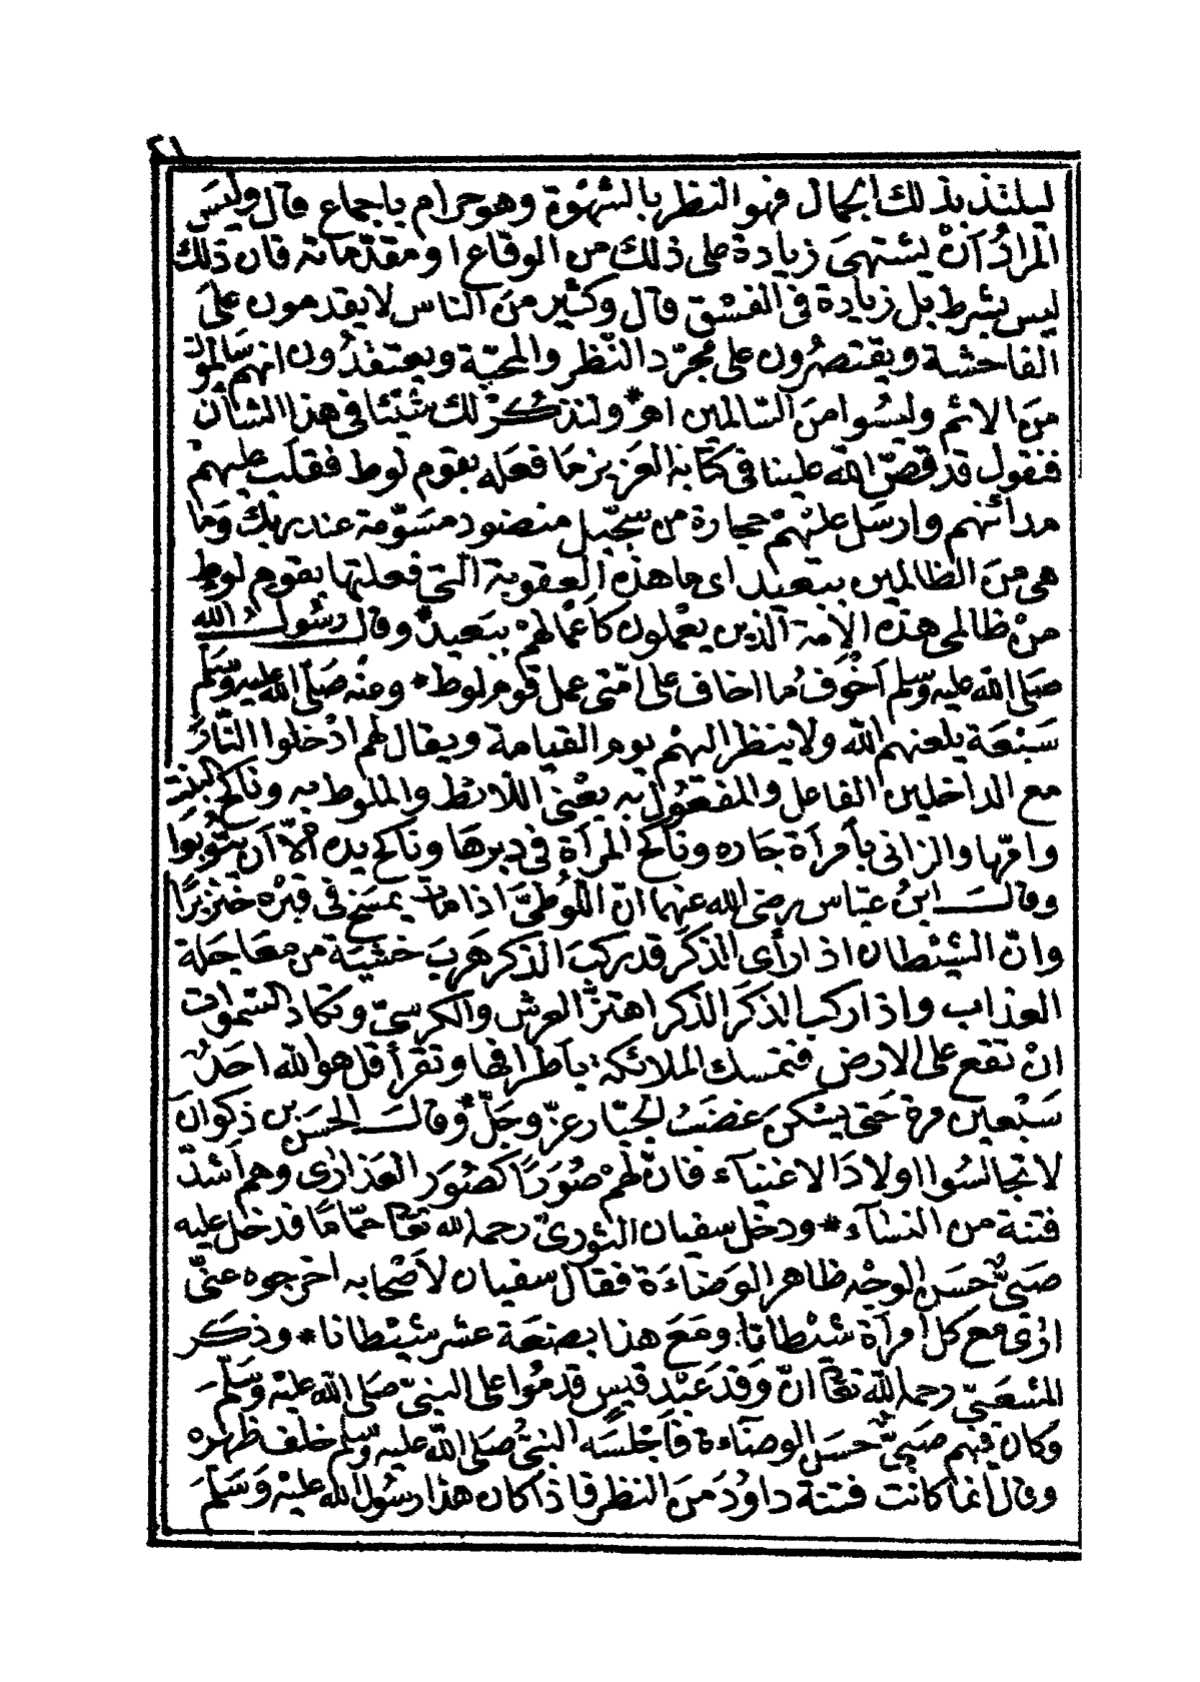 ٢١
ليلتذ بذلك الجمال فهو النظر بالشهوة وهو حرام باجماع قال وليس
المراد أن يشتهى زيادة على ذلك من الوقاع او مقدماته فان ذلك
ليس بشرط بل زيادة فى الفسق قال وكثير من الناس لا يقدمون على
الفاحشة ويقتصرون على مجرّد النّظر والمحبّة ويعتقدون انهم سالمون
من الاثم وليسوا من السّالمين اهـ * ولنذكر لك شيئا فى هذا الشان
فنقول قد قصّ الله علينا فى كتابه العزيز ما فعله بقوم لوط فقلب عليهم
مدائنهم وارسل عليهم حجارة من سجّيل منضود مسوّمة عند ربك وما
هى من الظالمين ببعيد اى ما هذه العقوبة التى فعلتها بقوم لوط
من ظالمى هذه الامة الذين يعملون كاعمالهم ببعيد * وقال رسول الله
صلى الله عليه وسلم أخوف ما اخاف على امّتى عمل قوم لوط * وعنه صلى الله عليه وسلم
سبعة يلعنهم الله ولا ينظر اليهم يوم القيامة ويقال لهم ادخلوا النّار
مع الداخلين الفاعل والمفعول به يعنى اللائط والملوط به وناكح البنت
وامّها والزانى بأمرأة جاره وناكح المرأة فى دبرها وناكح يده الّا أن يتوبوا
وقال ابن عبّاس رضى الله عنهما انّ اللّوطىّ اذا مات يمسخ فى قبره خنزيرا
وانّ الشيطان اذا رأى الذكر قد ركب الذكر هرب خشية من معاجلة
العذاب واذا ركب الذكر الذكر اهتزّ العرش والكرسىّ وتكاد السّموات
ان تقع على الارض فتمسك الملائكة بأطرافها وتقرأ قل هو الله احد
سبعين مرة حتى يسكن غضب الجبّار عزّ وجلّ * وقال الحسن بن ذكوان
لا تجالسوا اولاد الاغنيآء فانّ لهم صورا كصور العذارى وهم أشدّ
فتنة من النسآء * ودخل سفيان الثّورىّ رحمه الله تعالى حمّاما فدخل عليه
صبىّ حسن الوجه ظاهر الوضاءة فقال سفيان لأصحابه اخرجوه عنّى
ارى مع كل امرأة شيطانا ومع هذا بضعة عشر شيطانا * وذكر
الشعبىّ رحمه الله تعالى انّ وفد عبد قيس قدموا على النبىّ صلى الله عليه وسلم
وكان فيهم صبىّ حسن الوضآءة فأجلسه النبىّ صلى الله عليه وسلم خلف ظهره
وقال انما كانت فتنة داود من النظر فاذا كان هذا رسول الله عليه وسلم